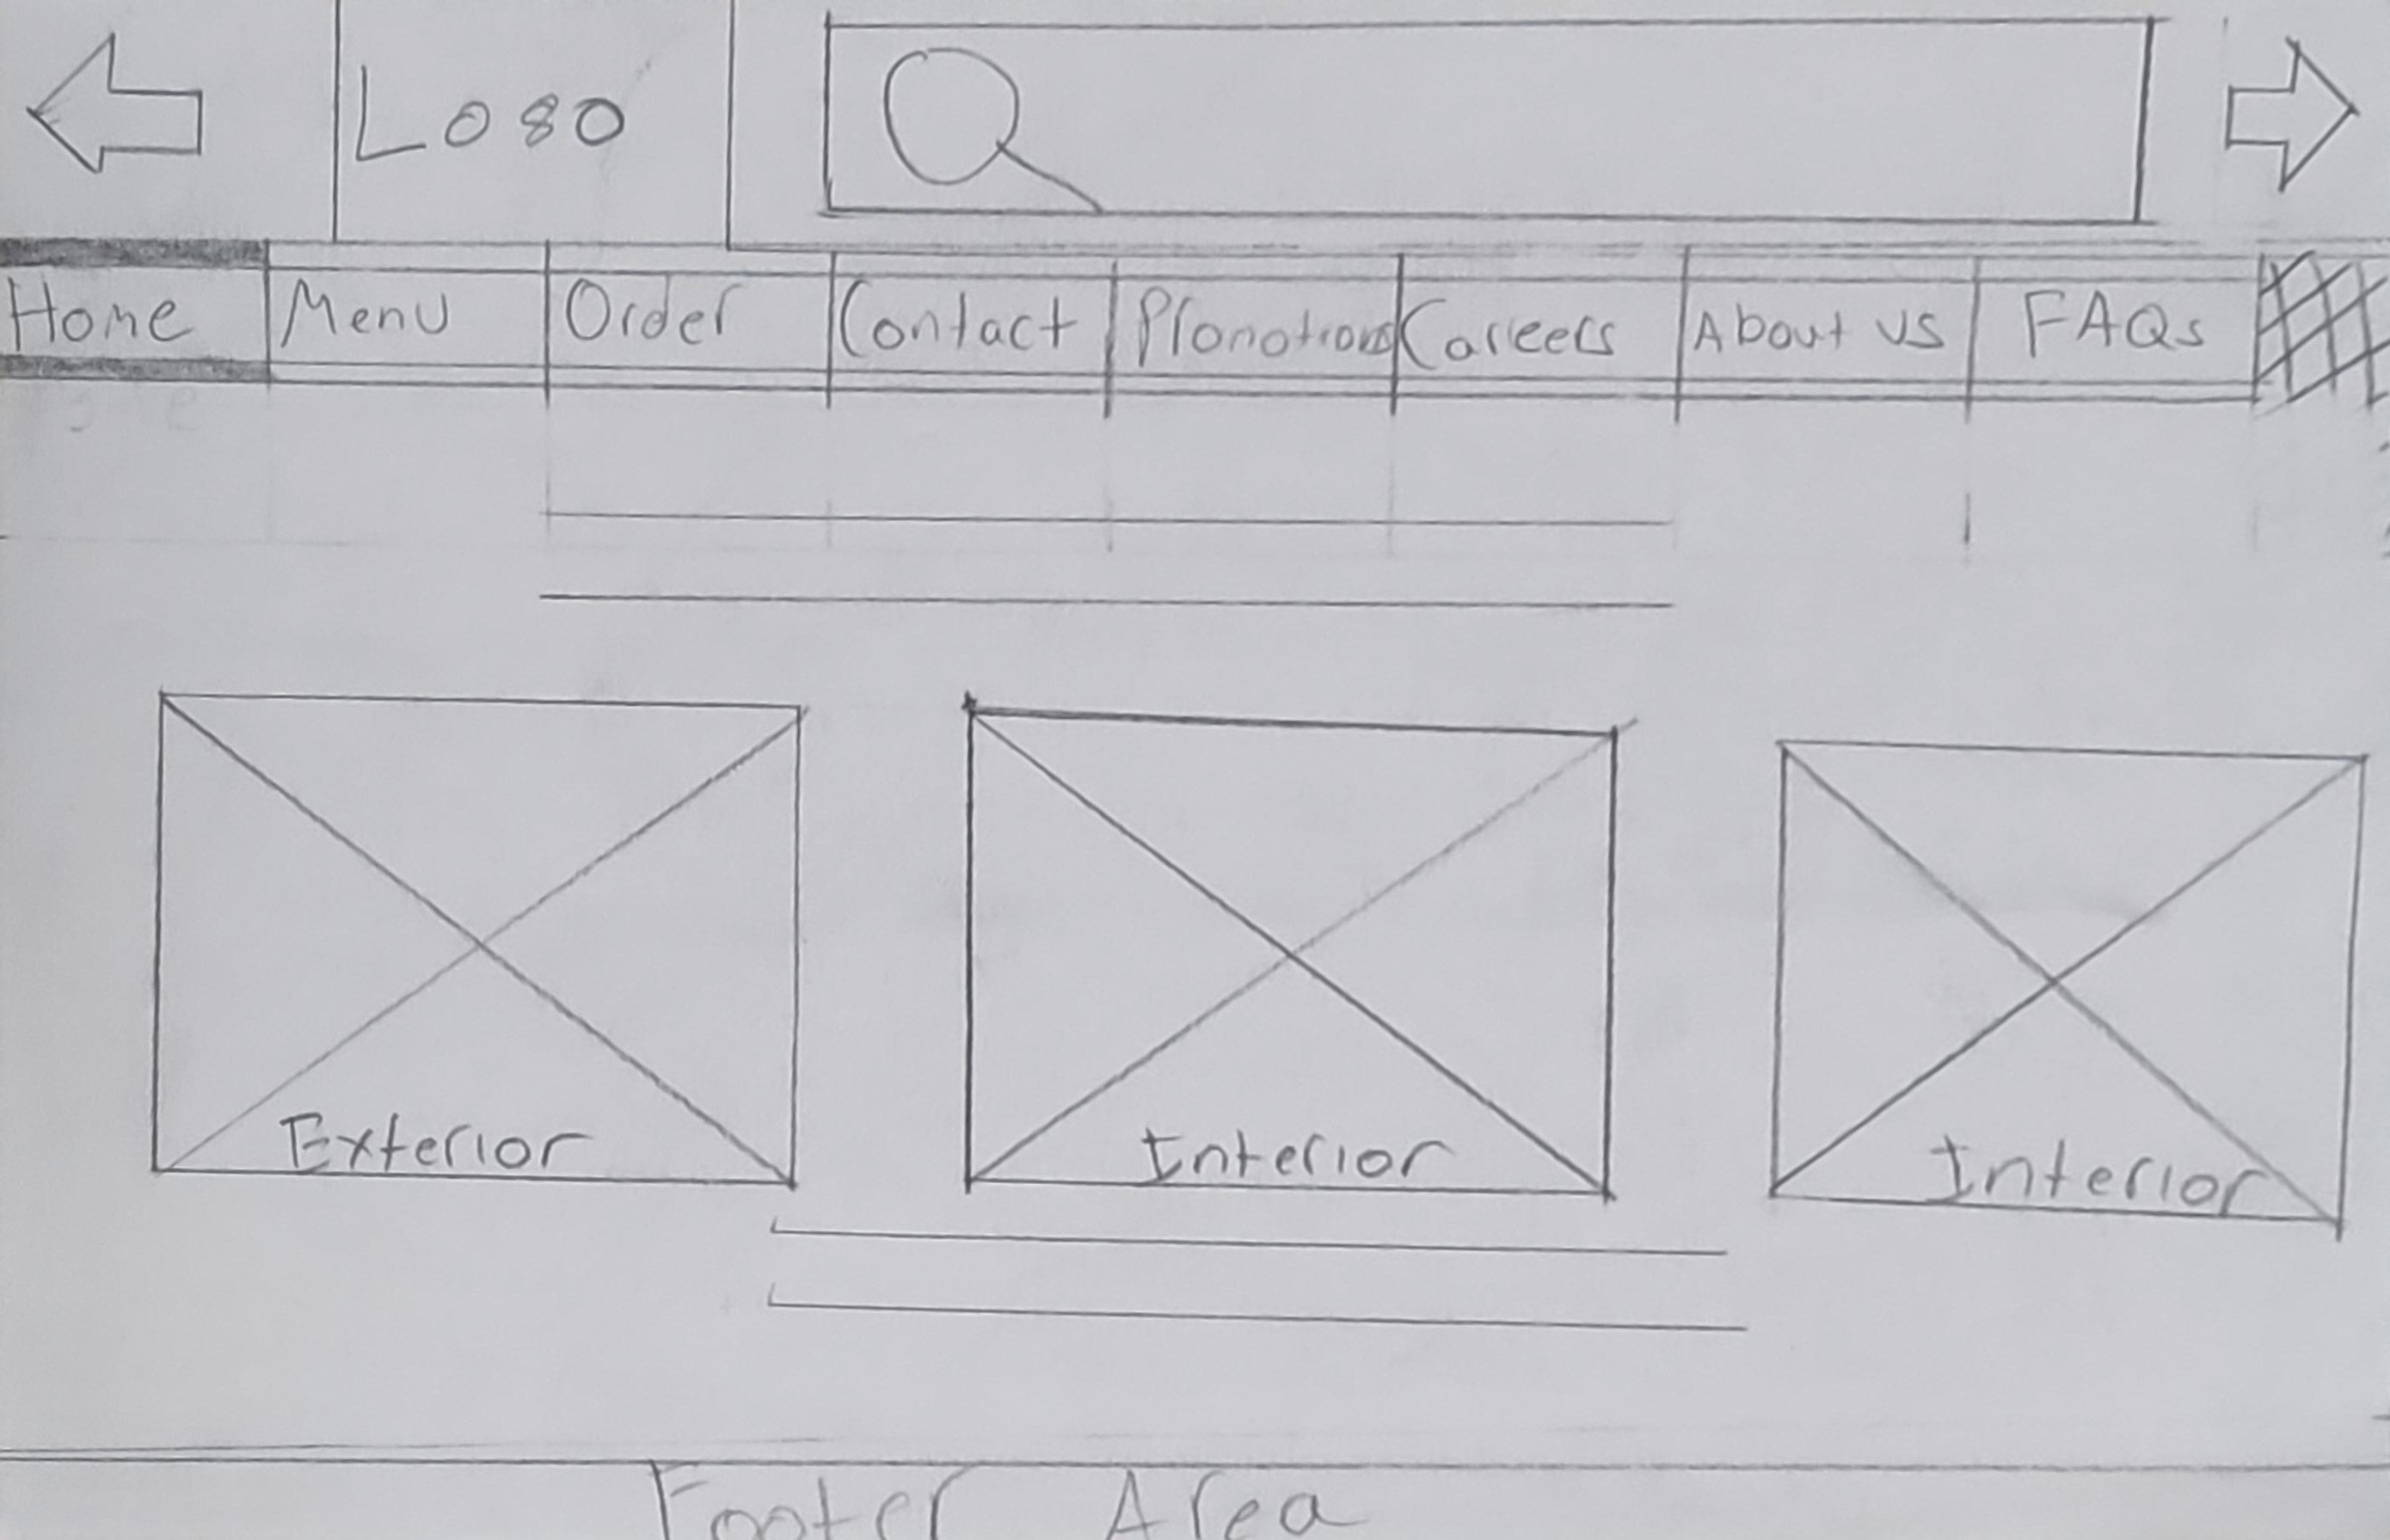 Logo
Home Menu Order Contact Promotions Careers About us FAQs
Exterior Interior Interior
Footer Area